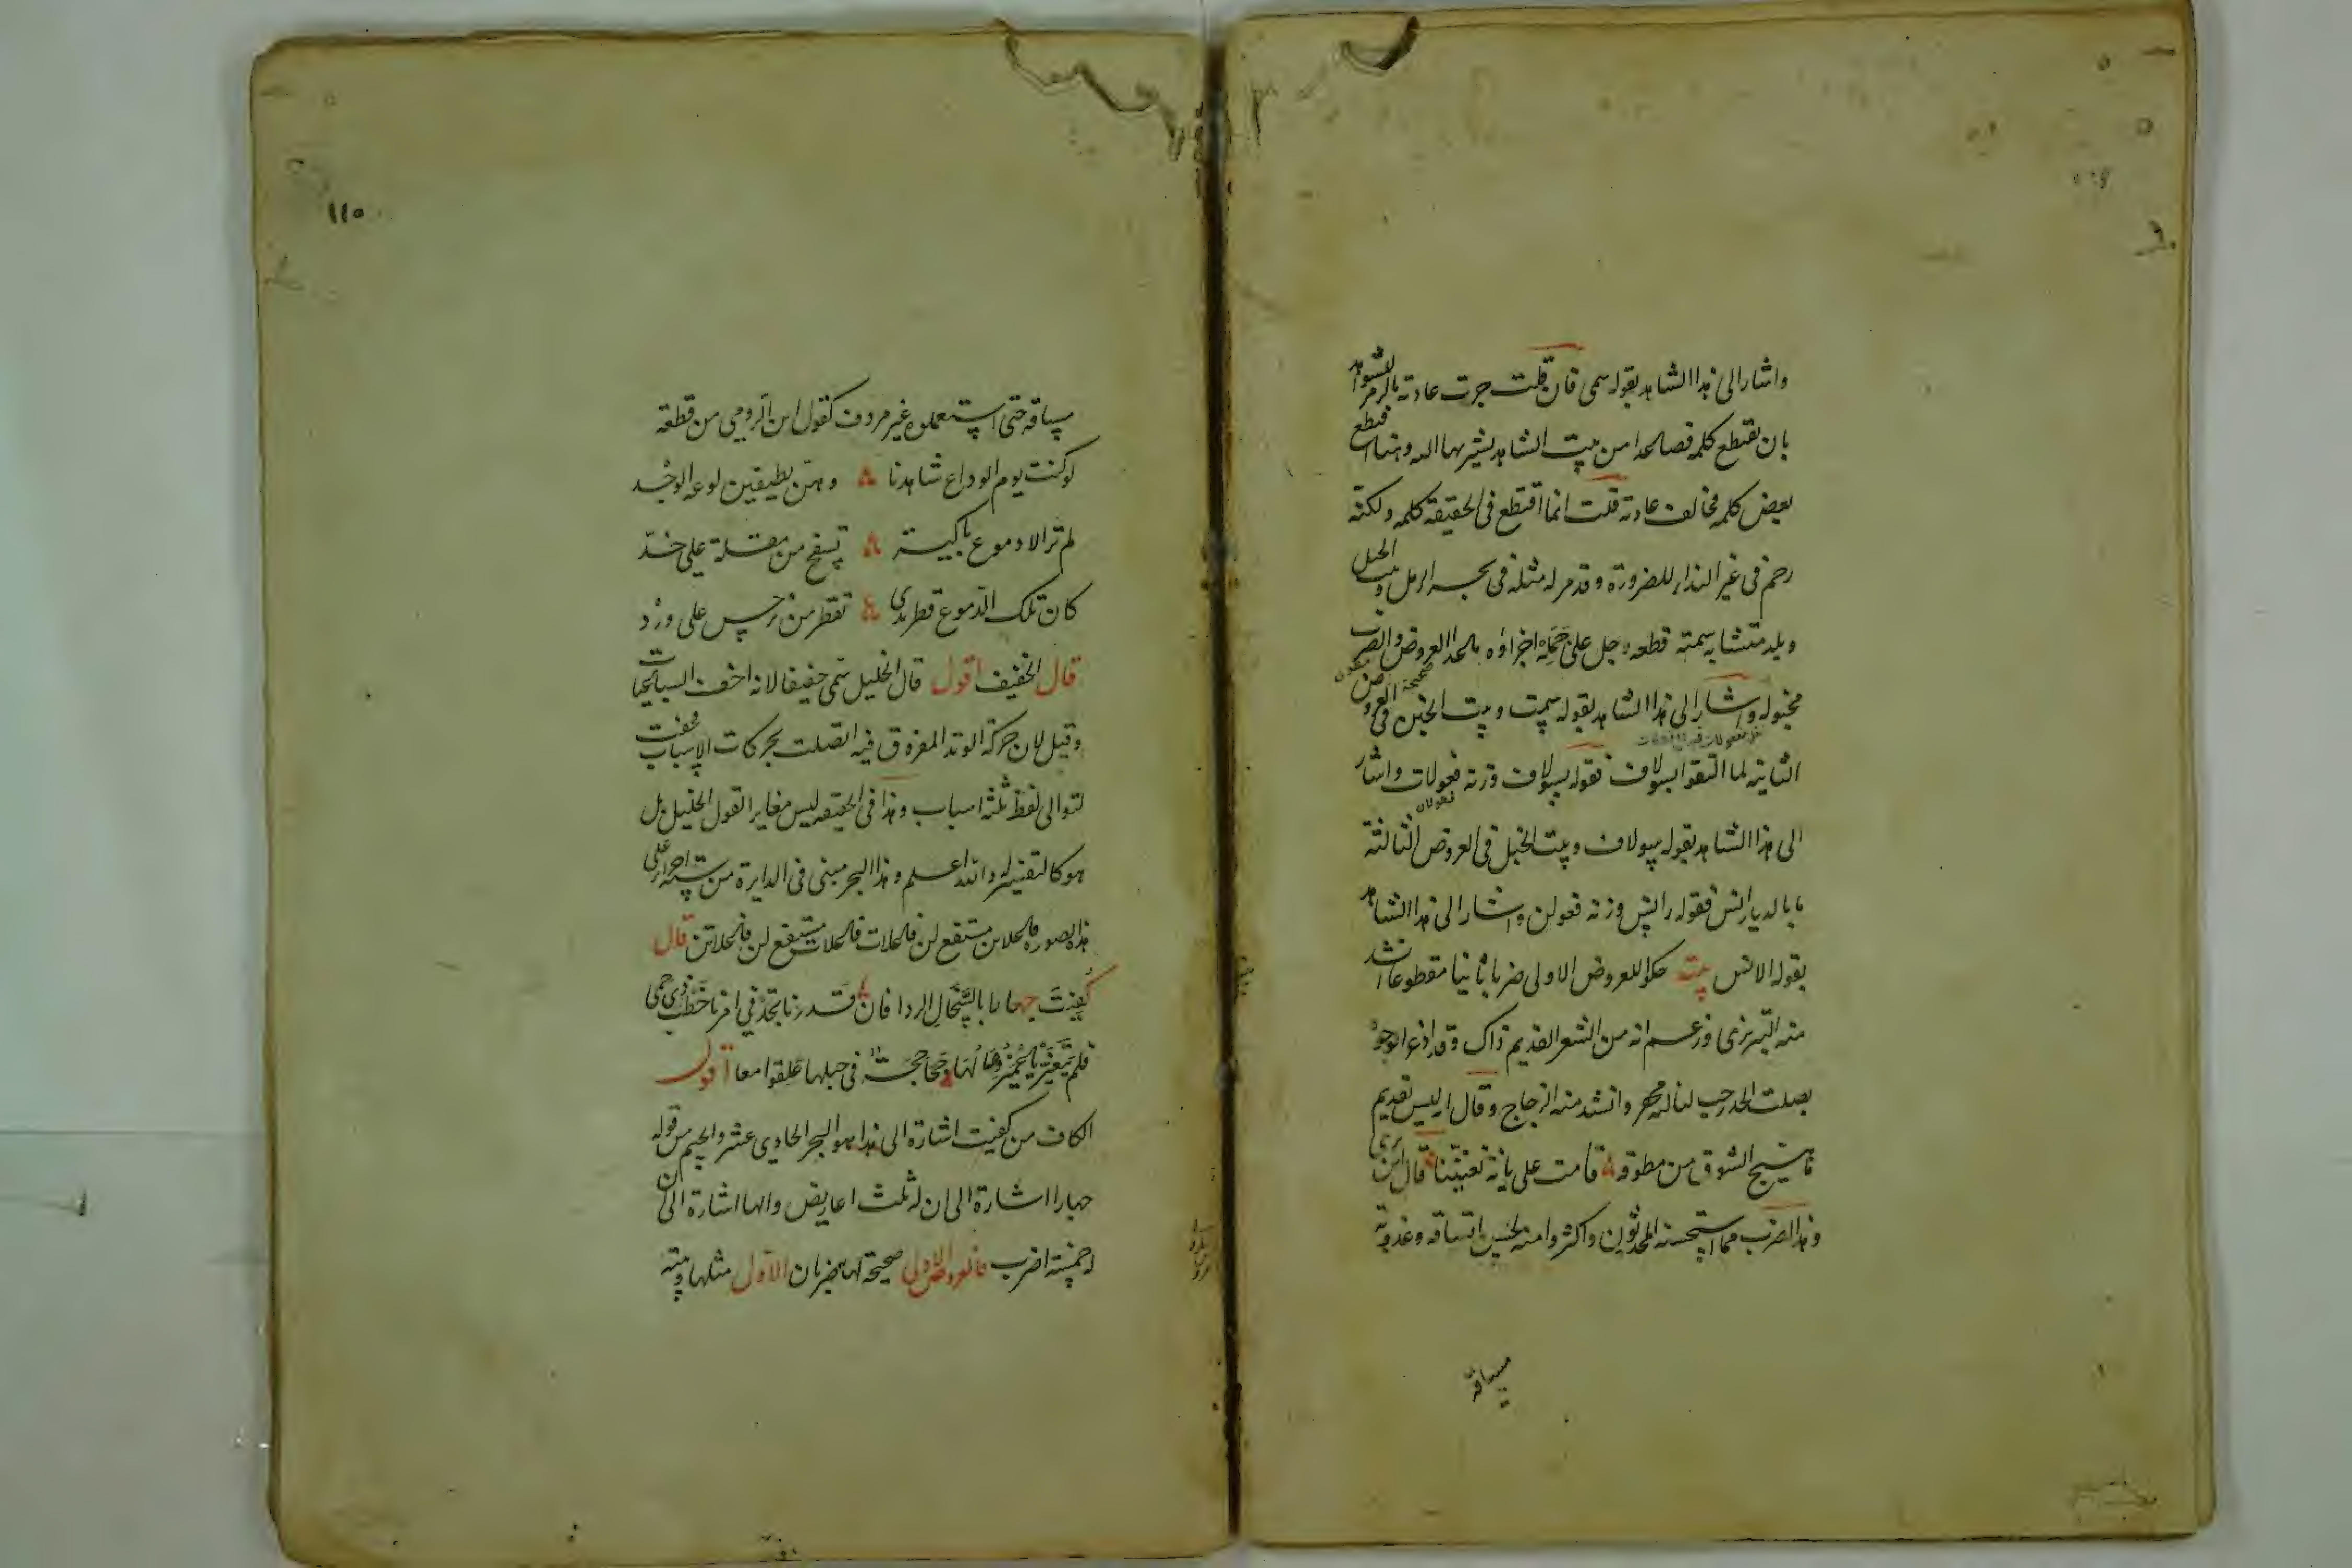 واشار الى هذا الشاهد بقوله سمى فان قلت جرت عادته بالرمز للشواهد
بان يقتطع كلمة فصاعدا من بيت الشاهد يشير بها اليه وهنا اقتطع
بعض كلمة فخالف عادته قلت انما اقتطع فى الحقيقة كلمة ولكنه
رخم فى غير النداء للضرورة وقد مر له مثله فى بحر الرمل وبيت الخبل
وبلد متشابه سمته قطعه رجل على جمله اجزاؤه ما عدا العروض والضرب
مخبوله واشار الى هذا الشاهد بقوله سمت وبيت الخبن فى العروض
الثانية لما التقوا بسولاف فقوله بسولاف وزنه فعولات واشار
فعولان
الى هذا الشاهد بقوله سولاف وبيت الخبل فى العروض الثالثة
ما بالديار انس فقوله رانس وزنه فعولن واشار الى هذا الشاهد
بقوله الانس تنبيه حكوا للعروض الاولى ضربا ثانيا مقطوعا انشد
منه التبريزى وزعم انه من الشعر القديم ذاك وقد اذعر الوحوش
بصلت الخد رحب لبانه مجفر وانشد منه الزجاج وقال ليس بقديم
ما هيج الشوق من مطوقة قامت على بانة تغنينا قال ابن برى
وهذا الضرب مما استحسنه المحدثون واكثروا منه لحسن اتساقه وعذوبة
مساقه
١١٥
مساقه حتى استعملوه غير مردوف كقول ابن الرومى من قطعة
لو كنت يوم الوداع شاهدنا وهن يطفين لوعة الوجد
لم تر الا دموع باكية تسفح من مقلة على خد
كان تلك الدموع قطر ندى تقطر من نرجس على ورد
قال الخفيف اقول قال الخليل سمى خفيفا لانه اخف السباعيات
وقيل لان حركة الوتد المفروق فيه اتصلت بحركات الاسباب فخفت
لتوالى لفظ ثلثة اسباب وهذا فى الحقيقة ليس مغايرا لقول الخليل بل
هو كالتفسير له والله اعلم وهذا البحر مبنى فى الدايرة من ستة اجزاء على
هذه الصورة فاعلاتن مستفع لن فاعلات فاعلات مستفع لن فاعلاتن قال
كفيت جهارا بالسخال الردا فان قدرنا نجد فى امرنا خطب ذى حمى
فلم يتغير يا عمير لها جحاجحة فى حبلها علقوا معا اقول
الكاف من كفيت اشارة الى هذا هو البحر الحادى عشر والجيم من قوله
جهارا اشارة الى ان له ثلث اعاريض والها اشارة الى ان
له خمسة اضرب فالعروض الاولى صحيحة لها ضربان الاول مثلها وبيته